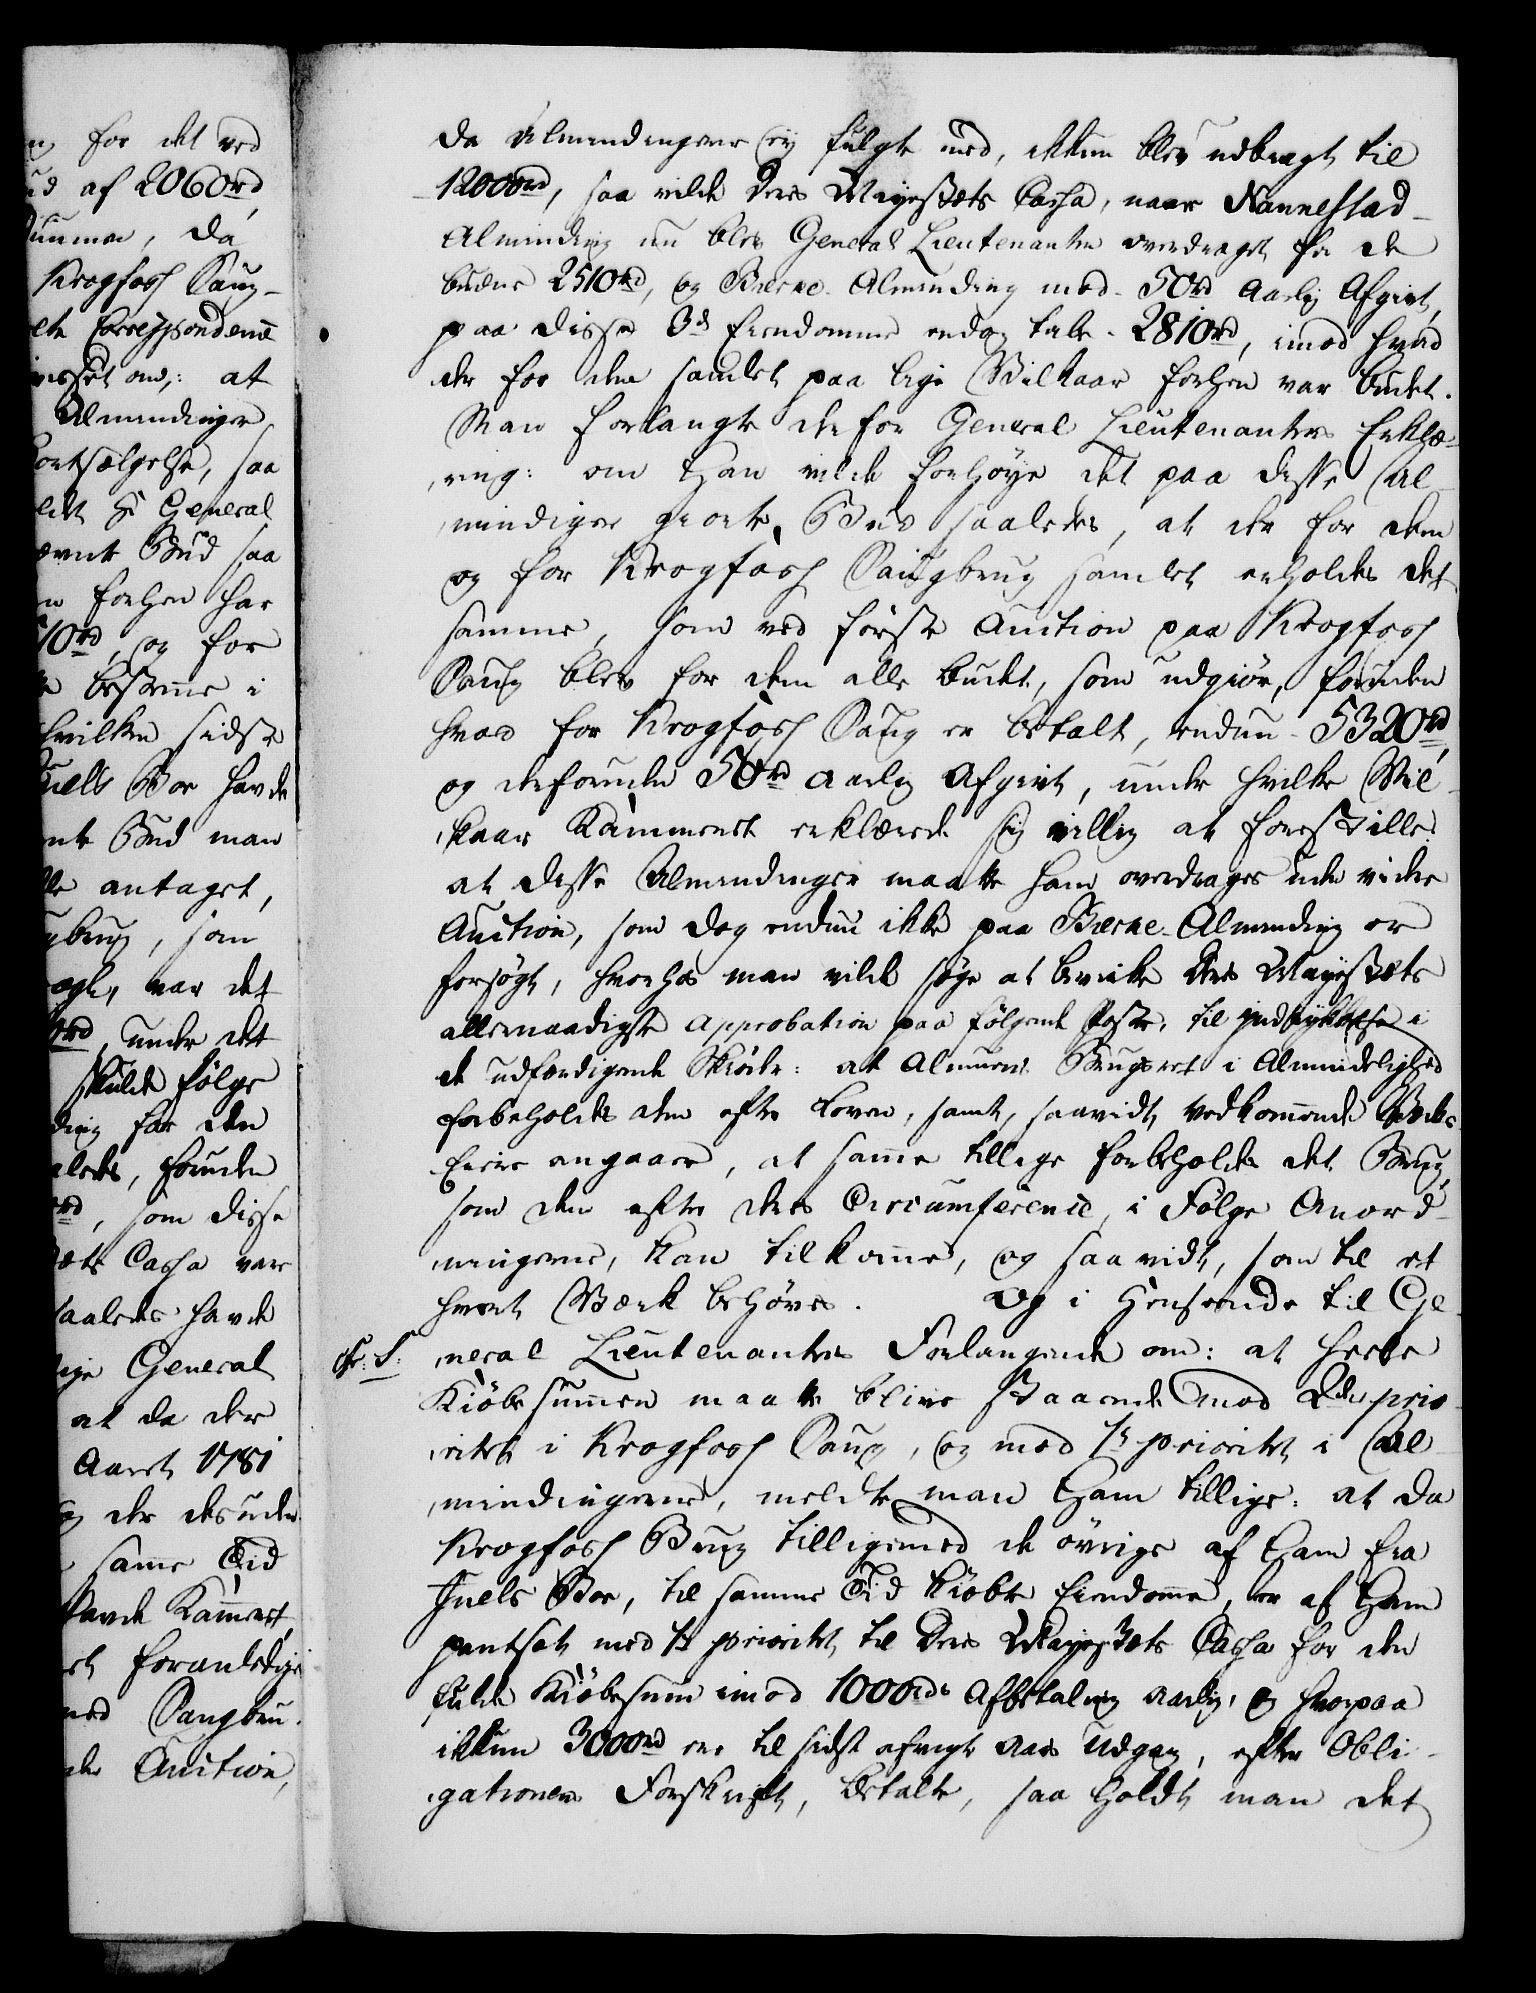 for det ved
af 2060rd
Summen, da
Krogfoss Saug-
Correspondence
om,: at
Almindinger
Bortsælgelse, saa
General
Bud saa
forhen har
10rd, og for
bestemme i
hvilken sidste
Juels Boe havde
Bud man
antaget,
som
var det
rd under det
skulde følge
for den
foruden
rd, som disse
Cassa vare
saaledes havde
General
at da der
Aaret 1781
der desuden
samme Tid
havde Kammeret
foranledige
med Saugbru-
Auction,
da Almindingerne ey fulgte med, ikkun blev udbragt til
12000rd, saa vilde Deres Majestæts Cassa, naar Nannestad-
Alminding nu blev General Lieutenanten overdraget for de
budne 2510rd, og Bierke Alminding mod 50rd aarlig Afgivt,
paa disse 3de Eiendomme endog tabe 2810rd, imod hvad
der for dem samlet paa lige Vilkaar forhen var budet.
Man forlangte derfor General Lieutenantens Erklæ-
ring: om Han vilde forhøye det paa disse Al-
mindiger giorte Bud saaledes, at der for dem
og for Krogfoss Saugbrug samlet erholdes det
samme, som ved første Auction paa Krogfoss
Saug blev for dem alle budet, som udgiør, foruden
hvad for Krogfoss Saug er betalt, endnu 5320rd,
og desforuden 50rd aarlig Afgivt, under hvilke Vil-
kaar Kammeret erklærede sig villig at forestille:
at disse Almindinger maatte ham overdrages uden videre
Auction, som dog endnu ikke paa Bierke Alminding er
forsøgt, hvorhos man vilde søge at bevirke Deres Majestæts
allernaadigste Approbation paa følgende Poster, til Indrykkelse i
de udfærdigende Skiøder: at Almuens Brugsret i Almindelighed
forbeholdes dem efter Loven, samt, saavidt vedkommende Værks
Eiere angaaer, at samme tillige forbeholdes det Brug,
som dem efter deres Circumference, i Følge Anord-
ningerne, kan tilkomme, og saavidt, som til et
hvert Værk behøves. Og i Henseende til Ge-
neral Lieutenantens Forlangende om: at heele
Kiøbesummen maatte blive staaende mod 2den prio-
ritet i Krogfoss Saug, og mod 1ste prioritet i Al-
mindingerne, meldte man Ham tillige: at da
Krogfoss Brug tilligemed de øvrige af Ham fra
Juels Boe, til samme Tid kiøbte Eiendomme, er af Ham
pantsat med 1ste prioritet til Deres Majestæts Cassa for den
fulde Kiøbesum imod 1000rds Afbetaling aarlig, og hvorpaa
ikkun 3000rd ere til sidst afvigte Aars Udgang, efter Obli-
gationens Forskrift, betalte, saa holdt man det